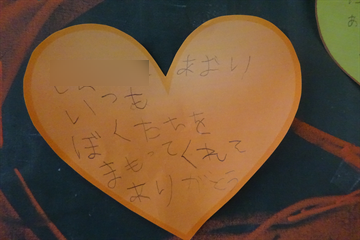 あおい
いつも
ぼくたちを
まもってくれて
ありがとう